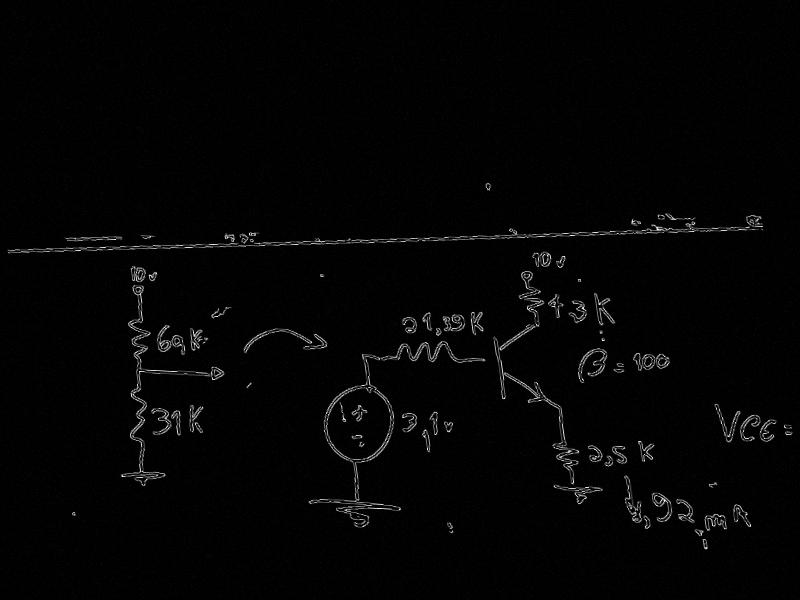 10 v
69K
31K
21,39 K
3,1v
10 v
4,3 K
β = 100
2,5 K
VCE =